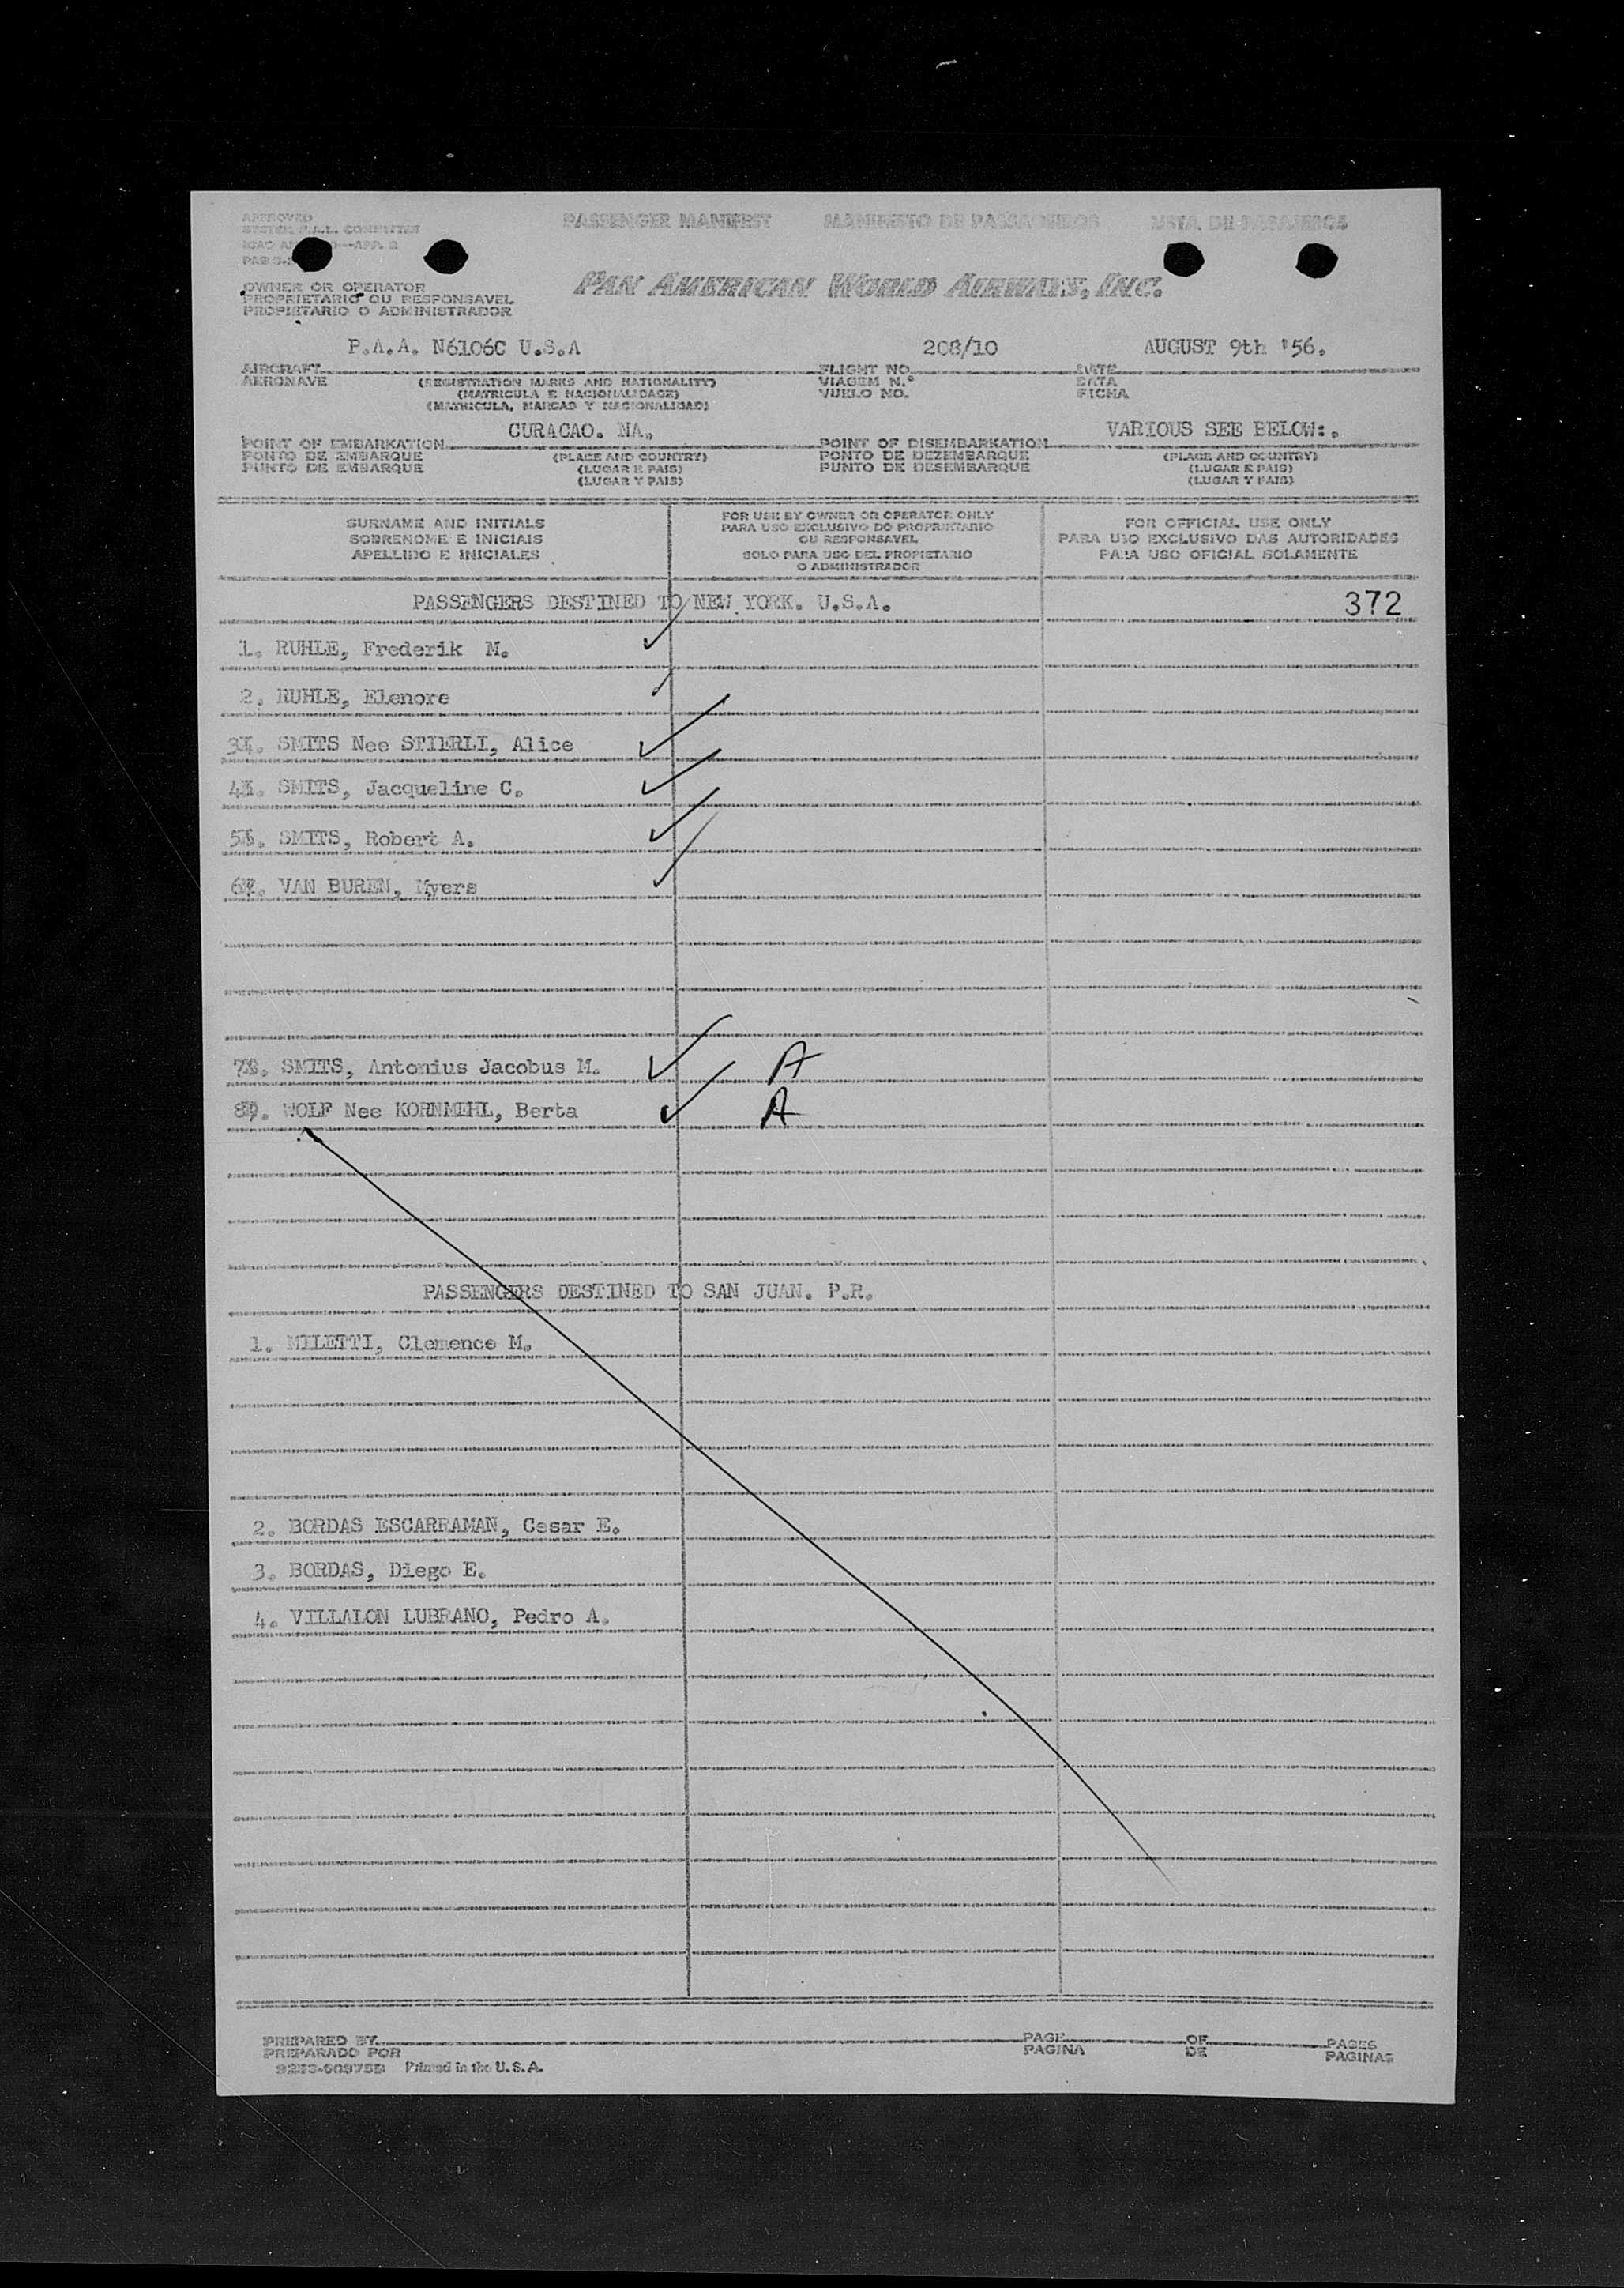 APPROVED
PASSENGER MANIFEST MANIFESTO DE PASSAGEIROS LISTA DE PASAJEROS
PAN AMERICAN WORLD AIRWAYS, INC.
OWNER OR OPERATOR
PROPRIETARIO OU RESPONSAVEL
PROPIETARIO O ADMINISTRADOR
P.A.A. N6106C U.S.A 208/10 AUGUST 9th '56.
AIRCRAFT FLIGHT NO. DATE
AERONAVE (REGISTRATION MARKS AND NATIONALITY) VIAGEM N.º DATA
(MATRICULA E NACIONALIDADE) VUELO NO. FECHA
(MATRICULA, MARCAS Y NACIONALIDAD)
CURACAO. NA. VARIOUS SEE BELOW:.
POINT OF EMBARKATION POINT OF DISEMBARKATION
PONTO DE EMBARQUE (PLACE AND COUNTRY) PONTO DE DEZEMBARQUE (PLACE AND COUNTRY)
PUNTO DE EMBARQUE (LUGAR E PAIS) PUNTO DE DESEMBARQUE (LUGAR E PAIS)
(LUGAR Y PAIS) (LUGAR Y PAIS)
SURNAME AND INITIALS
SOBRENOME E INICIAIS
APELLIDO E INICIALES
FOR USE BY OWNER OR OPERATOR ONLY
PARA USO EXCLUSIVO DO PROPRIETARIO
OU RESPONSAVEL
SOLO PARA USO DEL PROPIETARIO
O ADMINISTRADOR
FOR OFFICIAL USE ONLY
PARA USO EXCLUSIVO DAS AUTORIDADES
PARA USO OFICIAL SOLAMENTE
PASSENGERS DESTINED TO NEW YORK. U.S.A. 372
1. RUHLE, Frederik M.
2. RUHLE, Elenore
3. SMITS Nee STIERLI, Alice
4. SMITS, Jacqueline C.
5. SMITS, Robert A.
6. VAN BUREN, Myers
7. SMITS, Antonius Jacobus M. A
8. WOLF Nee KORNMEHL, Berta A
PASSENGERS DESTINED TO SAN JUAN. P.R.
1. MILETTI, Clemence M.
2. BORDAS ESCARRAMAN, Cesar E.
3. BORDAS, Diego E.
4. VILLALON LUBRANO, Pedro A.
PREPARED BY PAGE OF PAGES
PREPARADO POR PAGINA DE PAGINAS
Printed in the U. S. A.